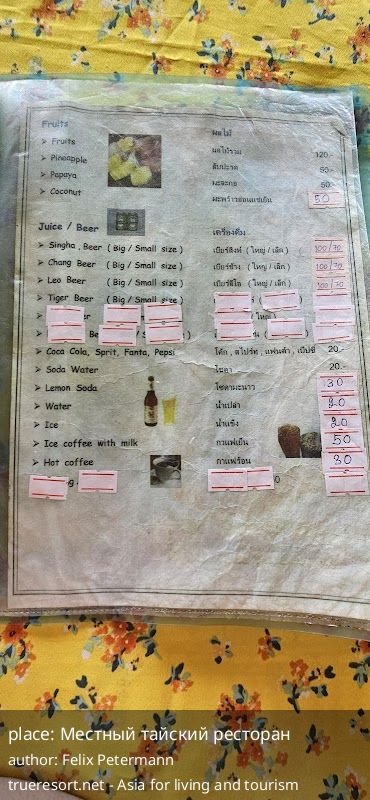 Fruits ผลไม้
➢ Fruits ผลไม้รวม 120.-
➢ Pineapple สับปะรด 50.-
➢ Papaya มะละกอ 50.-
➢ Coconut มะพร้าวอ่อนแช่เย็น 50
Juice / Beer เครื่องดื่ม
➢ Singha . Beer ( Big / Small size ) เบียร์สิงห์ ( ใหญ่ / เล็ก ) 100/70
➢ Chang Beer ( Big / Small size ) เบียร์ช้าง ( ใหญ่ / เล็ก ) 100/70
➢ Leo Beer ( Big / Small size ) เบียร์ลีโอ ( ใหญ่ / เล็ก ) 100/70
➢ Tiger Beer ( Big / Small size )
➢ Coca Cola, Sprit, Fanta, Pepsi โค้ก , สไปร์ท , แฟนต้า , เป๊ปซี่ 20.-
➢ Soda Water โซดา 20.-
➢ Lemon Soda โซดามะนาว 30
➢ Water น้ำเปล่า 20
➢ Ice น้ำแข็ง 20
➢ Ice coffee with milk กาแฟเย็น 50
➢ Hot coffee กาแฟร้อน 30
place: Местный тайский ресторан
author: Felix Petermann
trueresort.net - Asia for living and tourism